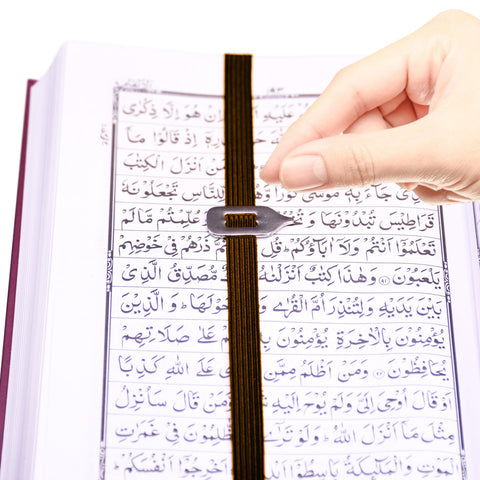 عَلَيْهِ اِنْ هُوَ اِلَّا ذِكْرٰى
قَدْرِهٖۤ اِذْ قَالُوْا مَاۤ
مَنْ اَنْزَلَ الْكِتٰبَ
جَآءَ بِهٖ مُوْسٰى لِّلنَّاسِ تَجْعَلُوْنَهٗ
قَرَاطِيْسَ تُبْدُوْنَهَا وَ عُلِّمْتُمْ مَّالَمْ
تَعْلَمُوْۤا اَنْتُمْ وَلَاۤ اٰبَآؤُكُمْ ؕ قُلِ ذَرْهُمْ فِيْ خَوْضِهِمْ
يَلْعَبُوْنَ ﴿۹۱﴾ وَهٰذَا كِتٰبٌ اَنْزَلْنٰهُ مُّصَدِّقُ الَّذِيْ
بَيْنَ يَدَيْهِ وَلِتُنْذِرَ اُمَّ الْقُرٰى حَوْلَهَا ؕ وَ الَّذِيْنَ
يُؤْمِنُوْنَ بِالْاٰخِرَةِ يُؤْمِنُوْنَ هُمْ عَلٰى صَلَاتِهِمْ
يُحَافِظُوْنَ ﴿۹۲﴾ وَمَنْ اَظْلَمُ مِمَّنِ عَلَى اللّٰهِ كَذِبًا
اَوْ قَالَ اُوْحِيَ اِلَيَّ وَلَمْ يُوْحَ اِلَيْهِ مَنْ قَالَ سَاُنْزِلُ
مِثْلَ مَاۤ اَنْزَلَ اللّٰهُ ؕ وَلَوْ تَرٰۤى الظّٰلِمُوْنَ فِيْ غَمَرٰتِ
الْمَوْتِ وَالْمَلٰٓئِكَةُ بَاسِطُوْۤا اَخْرِجُوْۤا اَنْفُسَكُمْ ؕ